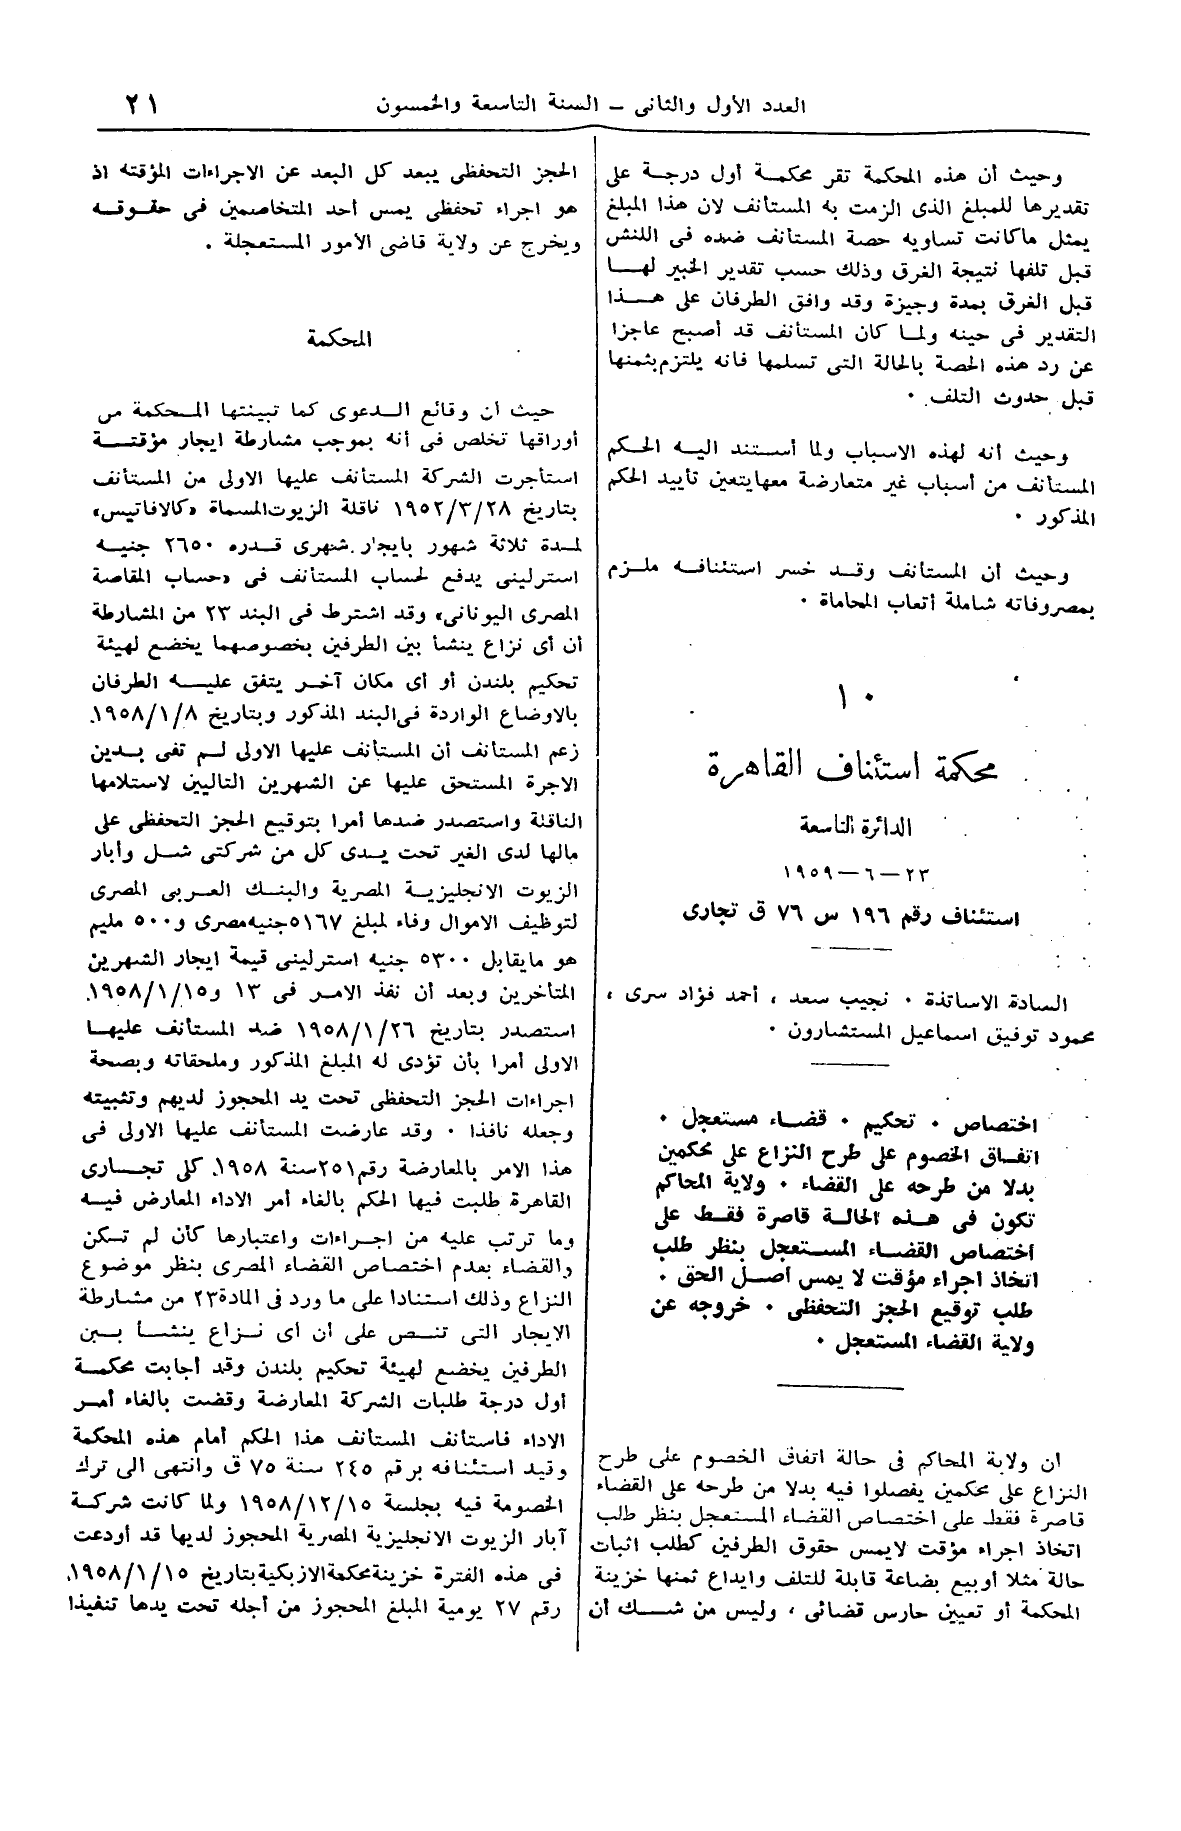 العدد الأول والثانى – السنة التاسعة والخمسون
٢١
وحيث أن هذه المحكمة تقر محكمة أول درجة على
تقديرها للمبلغ الذى الزمت به المستأنف لان هذا المبلغ
يمثل ماكانت تساويه حصة المستأنف ضده فى اللنش
قبل تلفها نتيجة الغرق وذلك حسب تقدير الخبير لهـا
قبل الغرق بمدة وجيزة وقد وافق الطرفان على هــذا
التقدير فى حينه ولما كان المستأنف قد أصبح عاجزا
عن رد هذه الحصة بالحالة التى تسلمها فانه يلتزم بثمنها
قبل حدوث التلف .
وحيث أنه لهذه الاسباب ولما أستند اليه الحكم
المستأنف من أسباب غير متعارضة معها يتعين تأييد الحكم
المذكور .
وحيث أن المستأنف وقد خسر استئنافه ملزم
بمصروفاته شاملة أتعاب المحاماة .
١٠
محكمة استئناف القاهرة
الدائرة التاسعة
٢٣ – ٦ – ١٩٥٩
استئناف رقم ١٩٦ س ٧٦ ق تجارى
السادة الاساتذة . نجيب سعد ، أحمد فؤاد سرى ،
محمود توفيق اسماعيل المستشارون .
اختصاص . تحكيم . قضاء مستعجل .
اتفاق الخصوم على طرح النزاع على محكمين
بدلا من طرحه على القضاء . ولاية المحاكم
تكون فى هذه الحالة قاصرة فقط على
اختصاص القضاء المستعجل بنظر طلب
اتخاذ اجراء مؤقت لا يمس أصل الحق .
طلب توقيع الحجز التحفظى . خروجه عن
ولاية القضاء المستعجل .
ان ولاية المحاكم فى حالة اتفاق الخصوم على طرح
النزاع على محكمين يفصلوا فيه بدلا من طرحه على القضاء
قاصرة فقط على اختصاص القضاء المستعجل بنظر طلب
اتخاذ اجراء مؤقت لايمس حقوق الطرفين كطلب اثبات
حالة مثلا أو بيع بضاعة قابلة للتلف وايداع ثمنها خزينة
المحكمة أو تعيين حارس قضائى ، وليس من شك أن
الحجز التحفظى يبعد كل البعد عن الاجراءات المؤقته اذ
هو اجراء تحفظى يمس أحد المتخاصمين فى حقوقه
ويخرج عن ولاية قاضى الأمور المستعجلة .
المحكمة
حيث أن وقائع الدعوى كما تبينتها المحكمة من
أوراقها تخلص فى أنه بموجب مشارطة ايجار مؤقتة
استأجرت الشركة المستأنف عليها الاولى من المستأنف
بتاريخ ١٩٥٢/٣/٢٨ ناقلة الزيوت المسماة «كالافاتيس»
لمدة ثلاثة شهور بايجار شهرى قدره ٢٦٥٠ جنيه
استرلينى يدفع لحساب المستأنف فى «حساب المقاصة
المصرى اليونانى» وقد اشترط فى البند ٢٣ من المشارطة
أن أى نزاع ينشأ بين الطرفين بخصوصهما يخضع لهيئة
تحكيم بلندن أو أى مكان آخر يتفق عليه الطرفان
بالاوضاع الواردة فى البند المذكور وبتاريخ ١٩٥٨/١/٨
زعم المستأنف أن المستأنف عليها الاولى لم تفى بدين
الاجرة المستحق عليها عن الشهرين التاليين لاستلامها
الناقلة واستصدر ضدها أمرا بتوقيع الحجز التحفظى على
مالها لدى الغير تحت يدى كل من شركتى شل وأبار
الزيوت الانجليزية المصرية والبنك العربى المصرى
لتوظيف الاموال وفاء لمبلغ ٥١٦٧ جنيه مصرى و٥٠٠ مليم
هو مايقابل ٥٣٠٠ جنيه استرلينى قيمة ايجار الشهرين
المتأخرين وبعد أن نفذ الامر فى ١٣ و١٩٥٨/١/١٥
استصدر بتاريخ ١٩٥٨/١/٢٦ ضد المستأنف عليها
الاولى أمرا بأن تؤدى له المبلغ المذكور وملحقاته وبصحة
اجراءات الحجز التحفظى تحت يد المحجوز لديهم وتثبيته
وجعله نافذا . وقد عارضت المستأنف عليها الاولى فى
هذا الامر بالمعارضة رقم ٢٥١ سنة ١٩٥٨ كلى تجارى
القاهرة طلبت فيها الحكم بالغاء أمر الاداء المعارض فيه
وما ترتب عليه من اجراءات واعتبارها كأن لم تكن
والقضاء بعدم اختصاص القضاء المصرى بنظر موضوع
النزاع وذلك استنادا على ما ورد فى المادة ٢٣ من مشارطة
الايجار التى تنص على أن أى نزاع ينشأ بين
الطرفين يخضع لهيئة تحكيم بلندن وقد أجابت محكمة
أول درجة طلبات الشركة المعارضة وقضت بالغاء أمر
الاداء فاستأنف المستأنف هذا الحكم أمام هذه المحكمة
وقيد استئنافه برقم ٢٤٥ سنة ٧٥ ق وانتهى الى ترك
الخصومة فيه بجلسة ١٩٥٨/١٢/١٥ ولما كانت شركة
آبار الزيوت الانجليزية المصرية المحجوز لديها قد أودعت
فى هذه الفترة خزينة محكمة الازبكية بتاريخ ١٩٥٨/١/١٥
رقم ٢٧ يومية المبلغ المحجوز من أجله تحت يدها تنفيذا